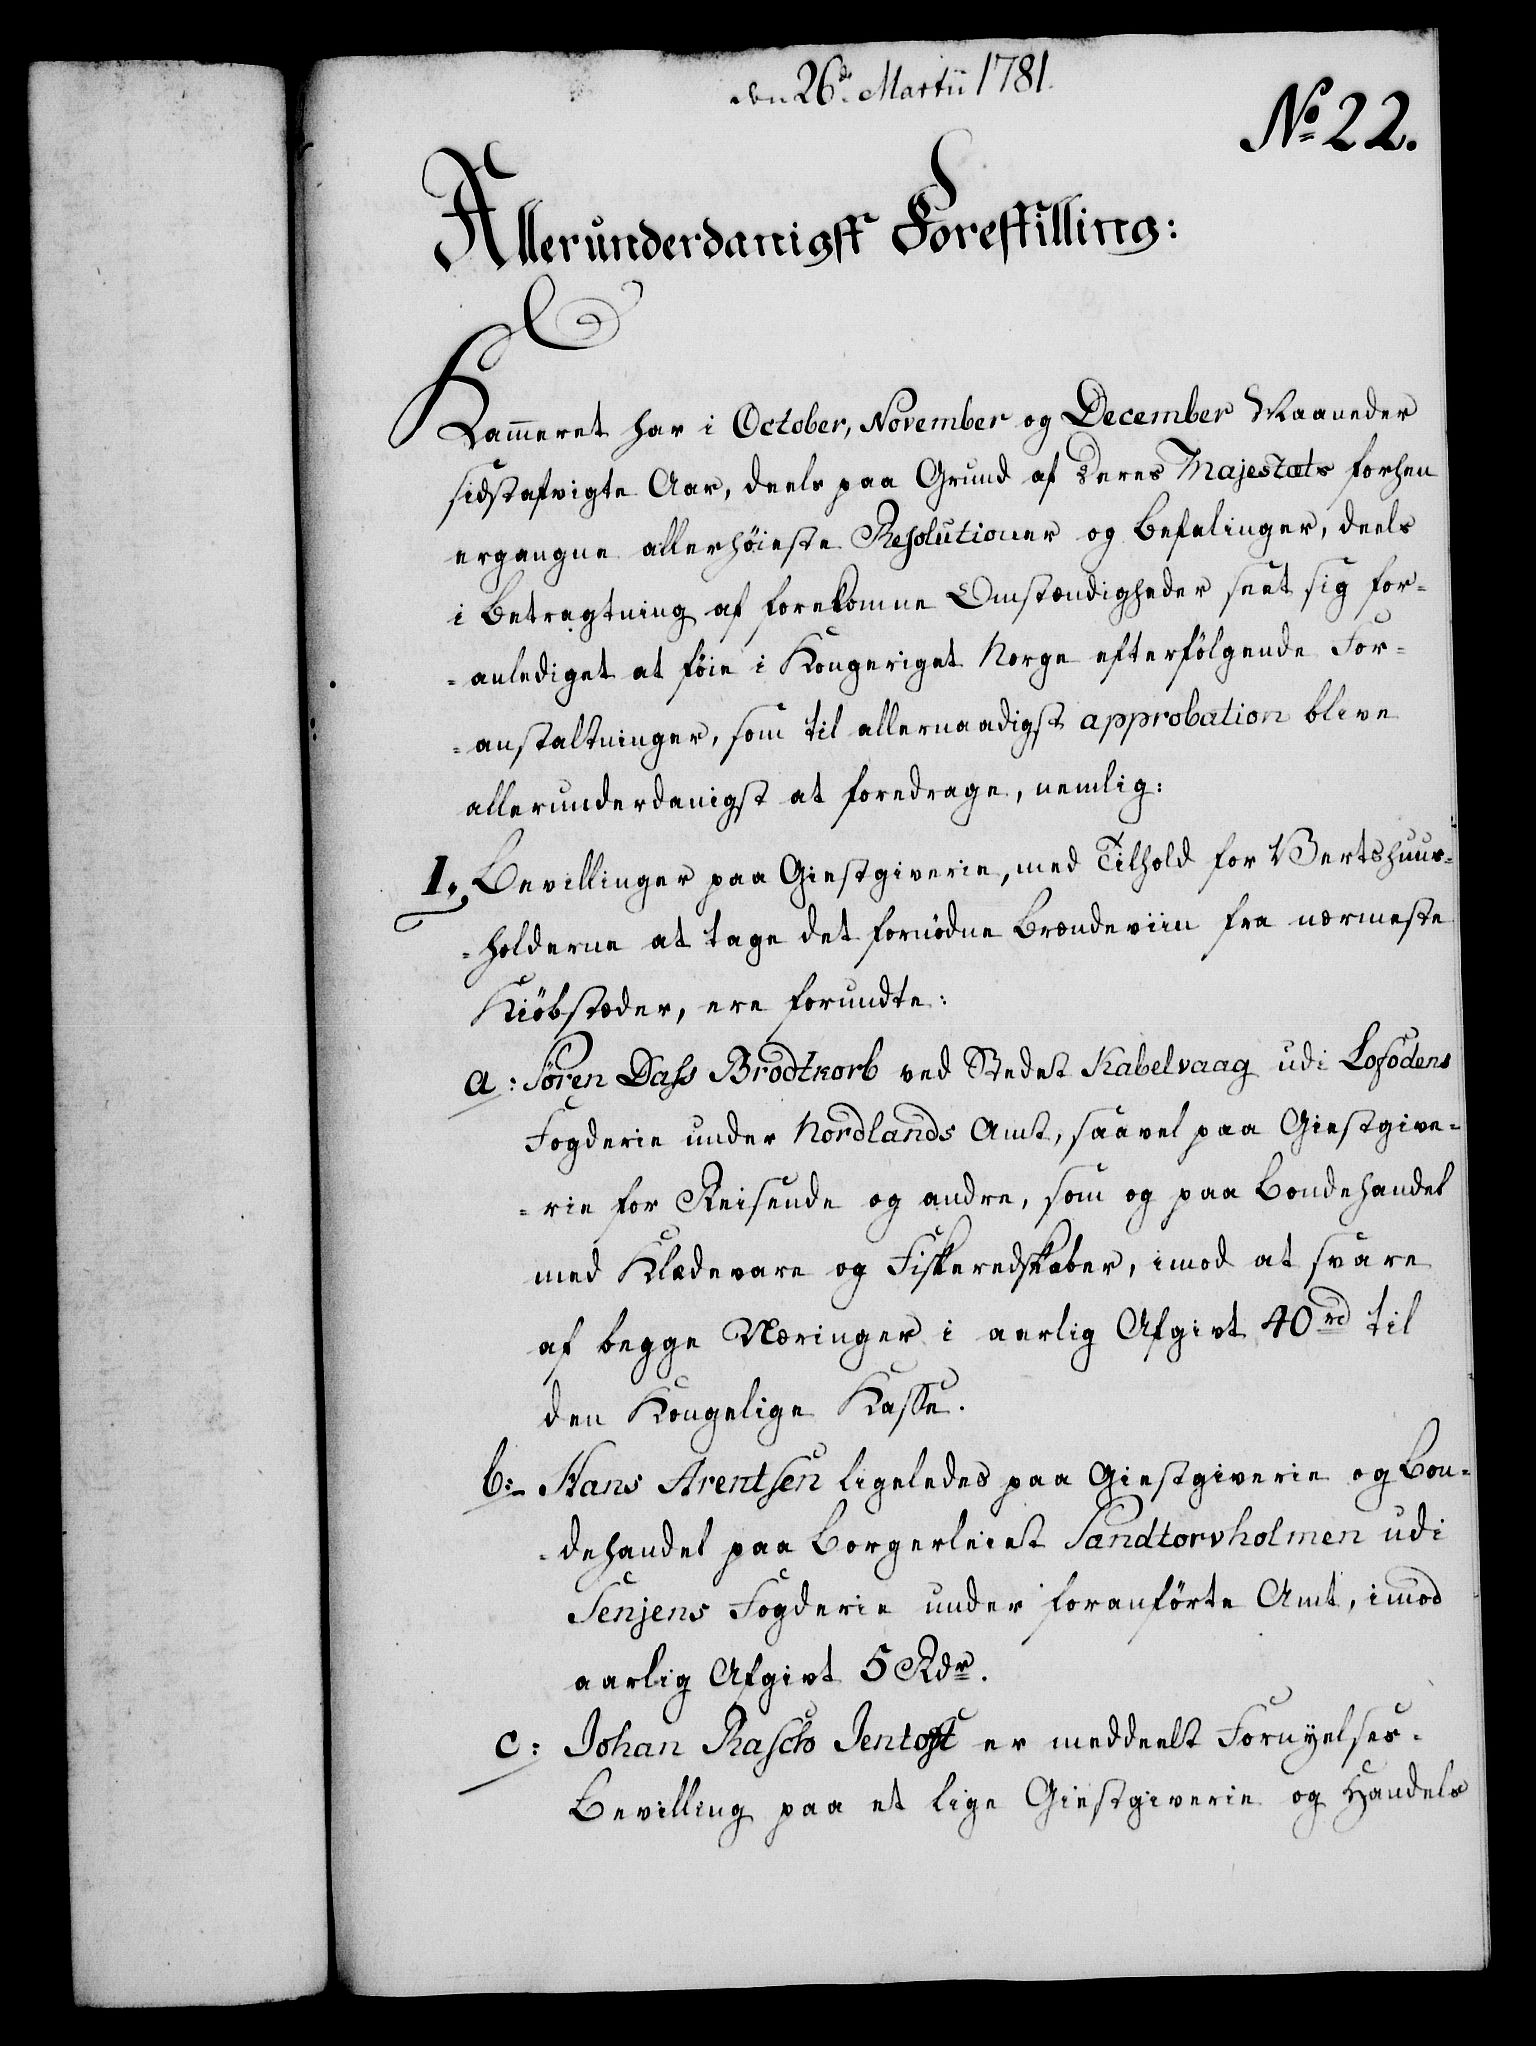 den 26de Martii 1781.
No 22.
Allerunderdanigst Forestilling:
Kammeret har i October, November og December Maaneder
sidstafvigte Aar, deels paa Grund af Deres Majestæts forhen
ergangne allerhøieste Resolutioner og Befalinger, deels
i Betragtning af forekomne Omstændigheder seet sig for-
-anlediget at føie i Kongeriget Norge efterfølgende For-
-anstaltninger, som til allernaadigst approbation blive
allerunderdanigst at foredrage, nemlig:
1. Bevillinger paa Giestgiverie, med Tilhold for Vertshuus-
-holderne at tage det fornødne Brændeviin fra nærmeste
Kiøbstæder, ere forundte:
a: Søren Dass Brodtkorb ved Stedet Kabelvaag udi Lofodens
Fogderie under Nordlands Amt, saavel paa Giestgive-
-rie for Reisende og andre, som og paa Bondehandel
med Klædevare og Fiskeredskaber, imod at svare
af begge Næringer i aarlig Afgivt 40 rd til
den Kongelige Kasse.
b: Hans Arentsen ligeledes paa Giestgiverie og Bon-
-dehandel paa Borgerleiet Sandtorvholmen udi
Senjens Fogderie under foranførte Amt, imod
aarlig Afgivt 5 Rdr.
c: Johan Rasch Jentoft er meddeelt Fornyelses-
Bevilling paa et lige Giestgiverie og Handels